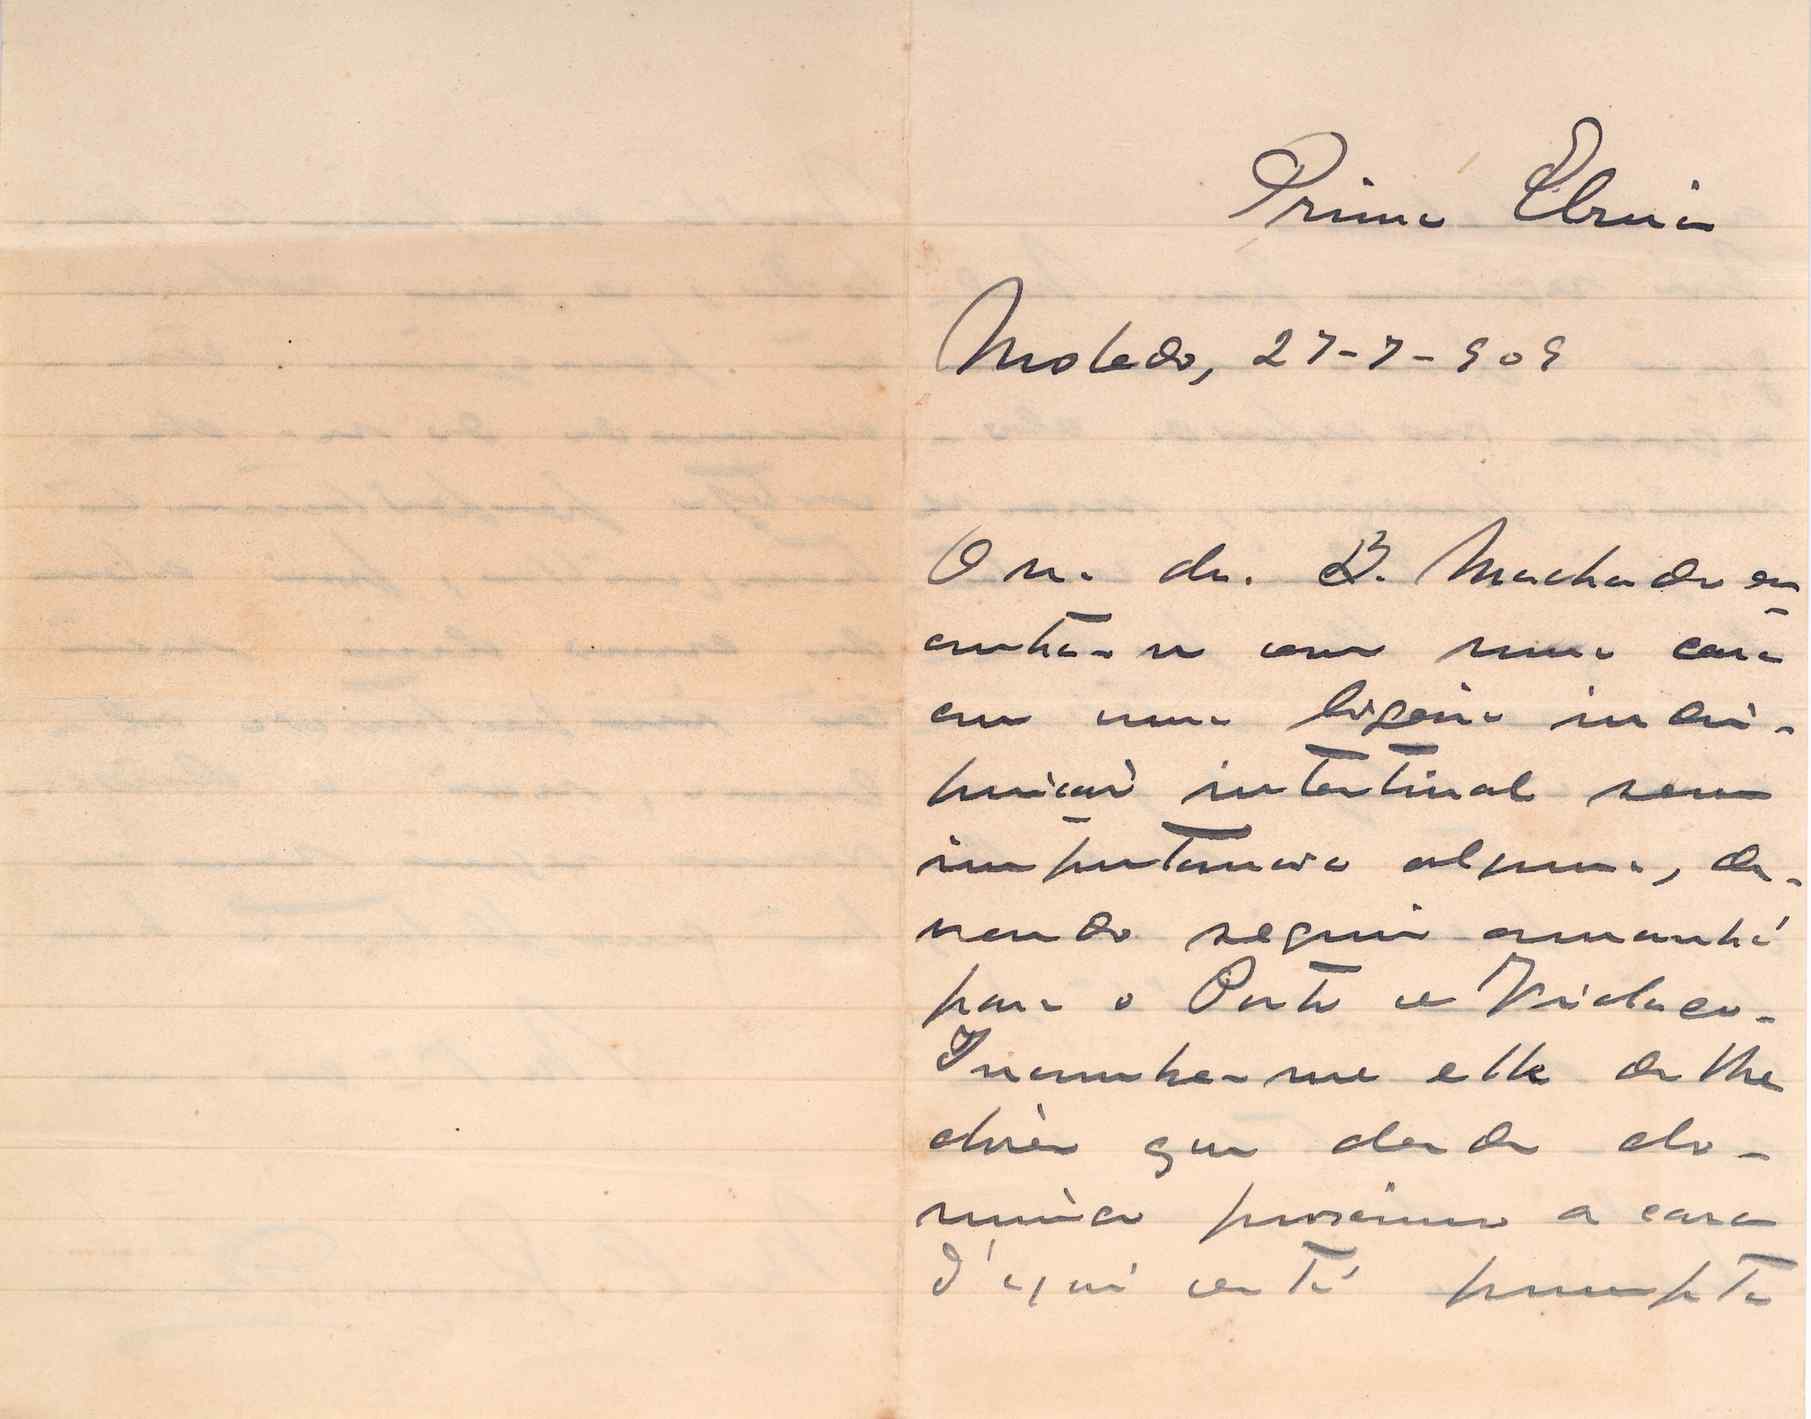 Prima Elzira
Moledo, 27-7-909
O sr. dr. B. Machado en
contra-se em minha casa
com uma ligeira indis-
posição intestinal sem
importancia alguma, de-
vendo seguir amanhã
para o Porto e Vidago.
Incumbe-me elle de lhe
dizer que desde do-
mingo proximo a casa
d'aqui está prompta